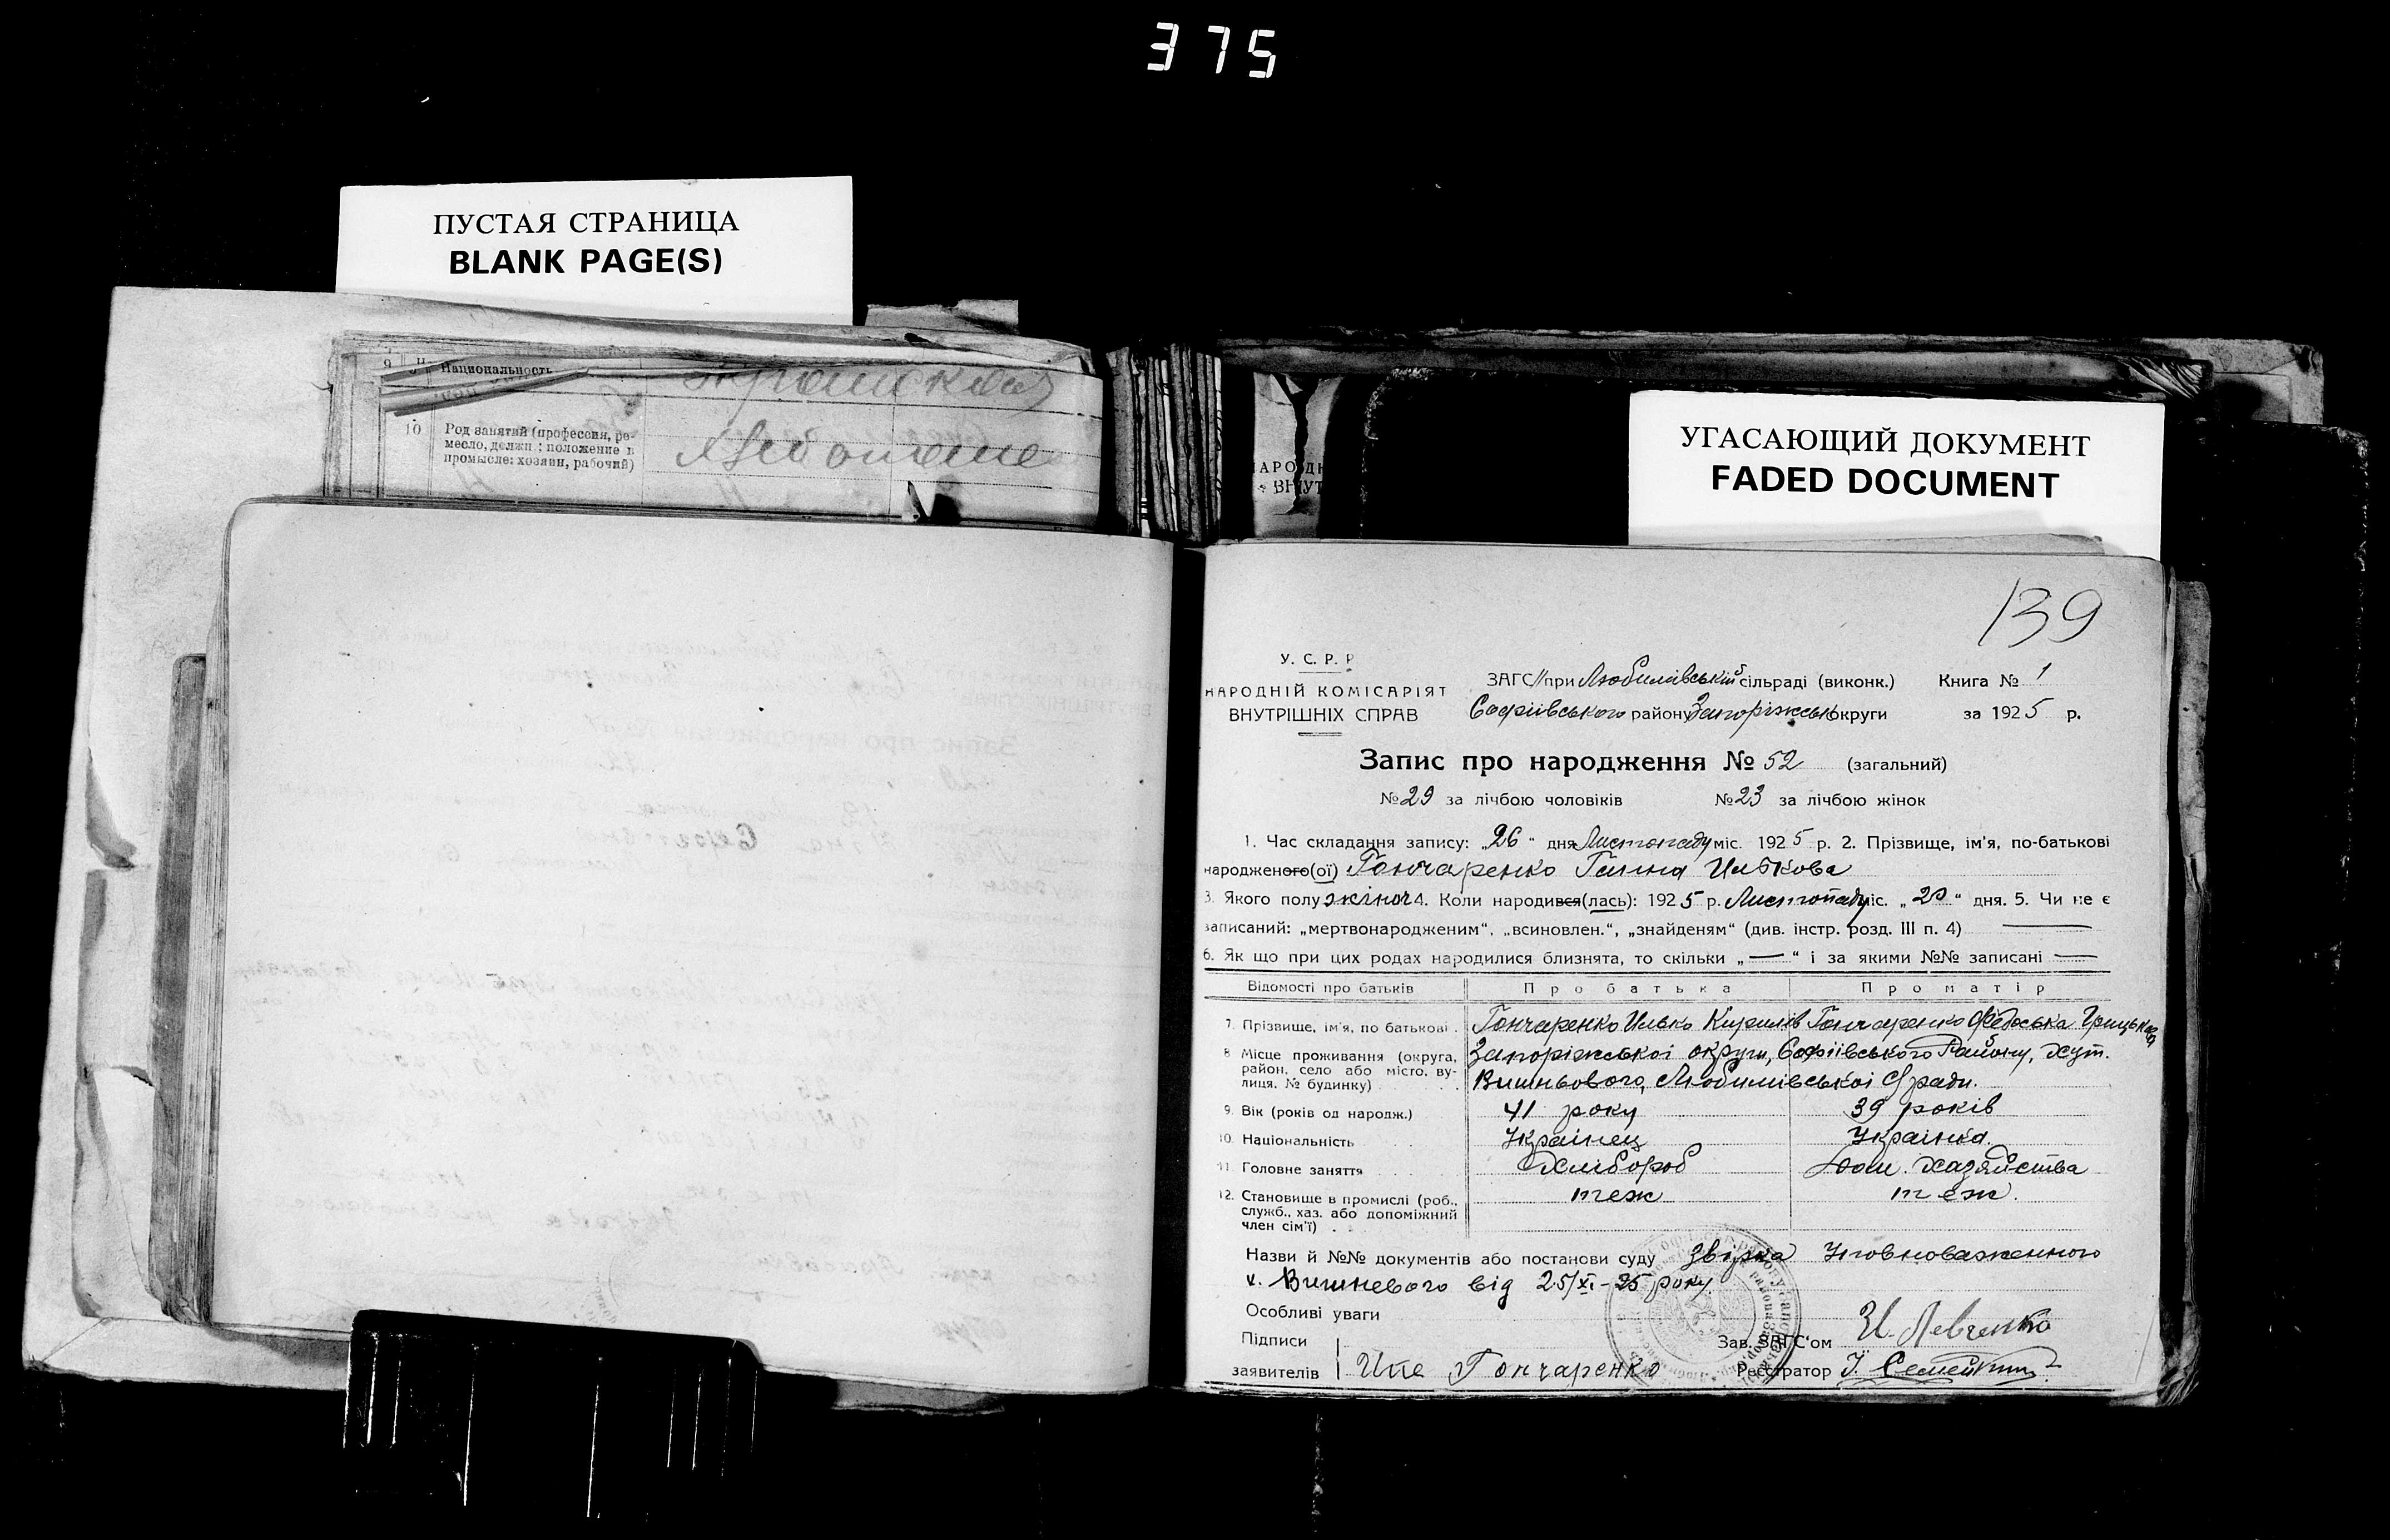 375
ПУСТАЯ СТРАНИЦА
BLANK PAGE(S)
9 Национальность
10 Род занятий (профессия, ре-
месло, должн ; положение в
промысле: хозяин, рабочий)
УГАСАЮЩИЙ ДОКУМЕНТ
FADED DOCUMENT
139
У. С. Р. Р
НАРОДНІЙ КОМІСАРІЯТ
ВНУТРІШНІХ СПРАВ
ЗАГС при Любимівській сільраді (виконк.) Книга № 1
Софіївського району Запоріжськ округи за 1925 р.
Запис про народження № 52 (загальний)
№ 29 за лічбою чоловіків № 23 за лічбою жінок
1. Час складання запису: „26“ дня Листопаду міс. 1925 р. 2. Прізвище, ім'я, по-батькові
народженого(ої) Гончаренко Ганна Илькова
3. Якого полу жіноч 4. Коли народився(лась): 1925 р. Листопаду міс. „20“ дня. 5. Чи не є
записаний: „мертвонародженим“, „всиновлен.“, „знайденям“ (див. інстр. розд. III п. 4) —
6. Як що при цих родах народилися близнята, то скільки „—“ і за якими №№ записані —
Відомості про батьків Про батька Про матір
7. Прізвище, ім'я, по батькові . Гончаренко Илько Кирилів Гончаренко Федоська Грицькова
8 Місце проживання (округа, Запоріжської округи, Софіївського Району, хут.
район, село або місто, ву-
лиця, № будинку) Вишньового, Любимівської С/ради.
9. Вік (років од народж.) 41 року 39 років
10. Національність Українец Українка.
11. Головне заняття Хлібороб Дом. хазяйства
12. Становище в промислі (роб., теж теж.
служб., хаз. або допоміжний
член сім'ї) .
Назви й №№ документів або постанови суду Звірка Уповноваженного
х. Вишневого від 25/XI-25 року.
Особливі уваги
Підписи Зав. ЗАГС'ом И. Левченко
заявителів Гончаренко Реєстратор